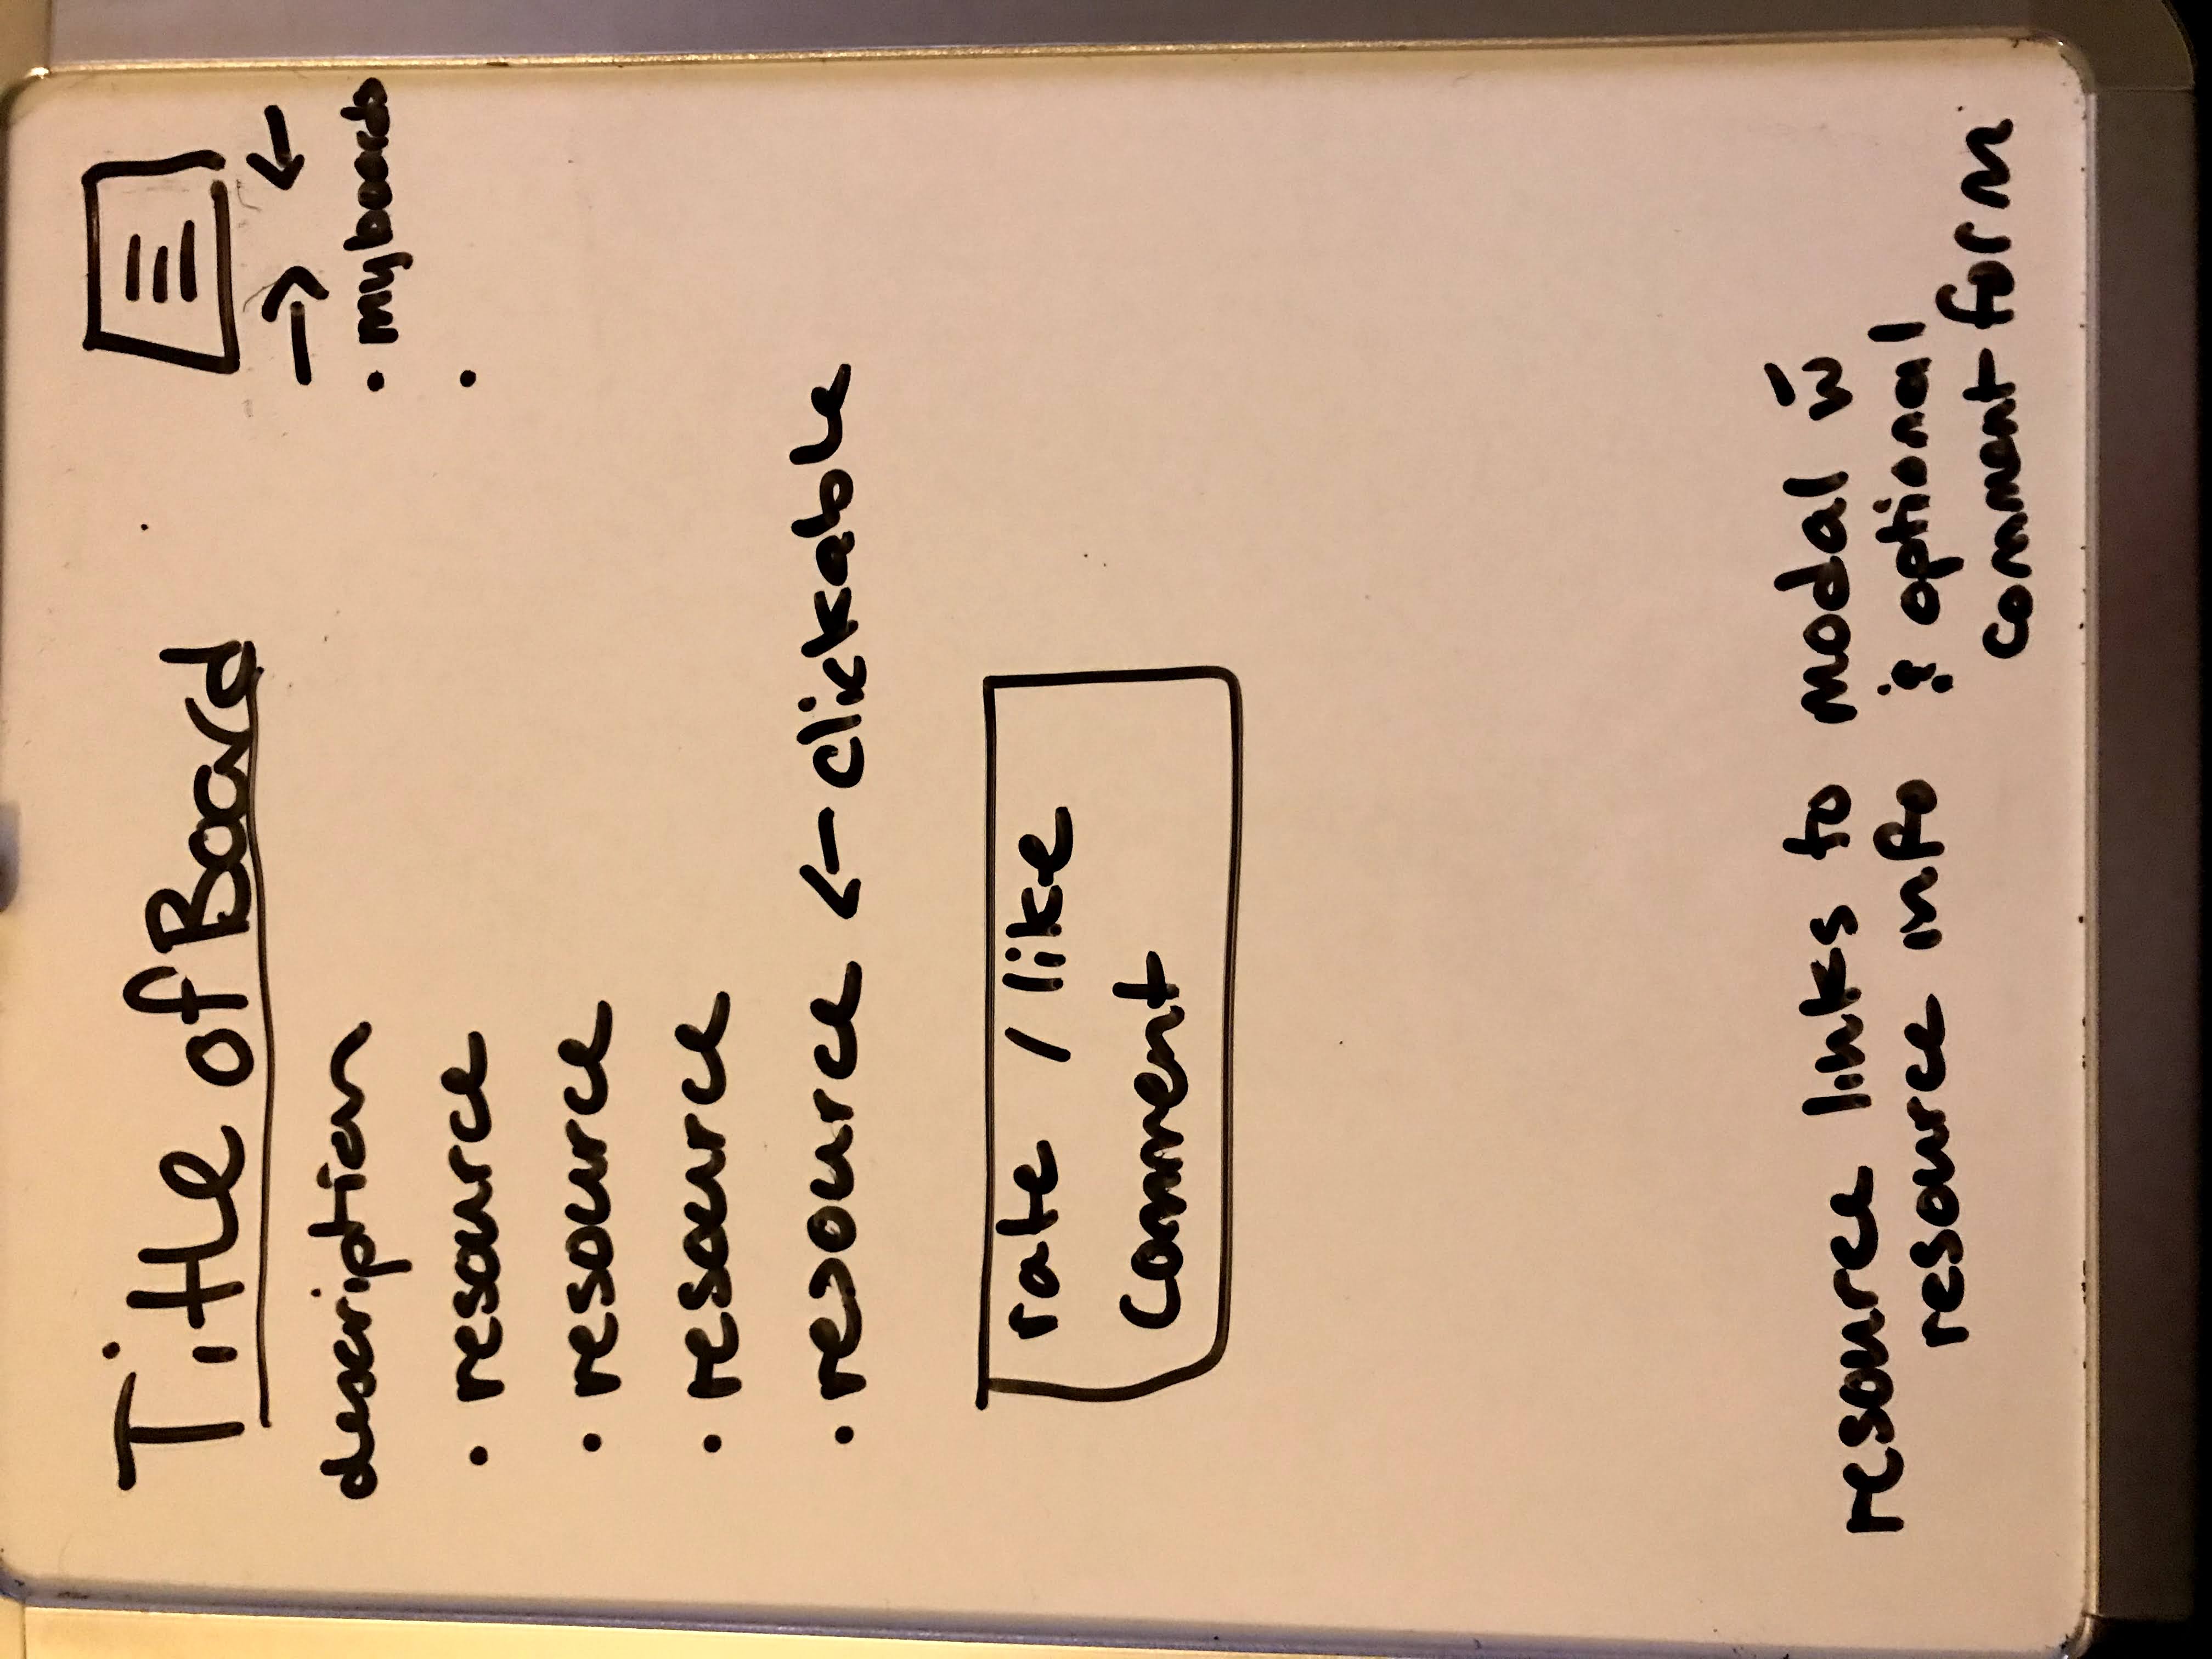 Title of Board
description
• resource
• resource
• resource
• resource ← clickable
→ ←
• my boards
•
rate / like
comment
resource links to modal w̄
resource info & optional
comment form